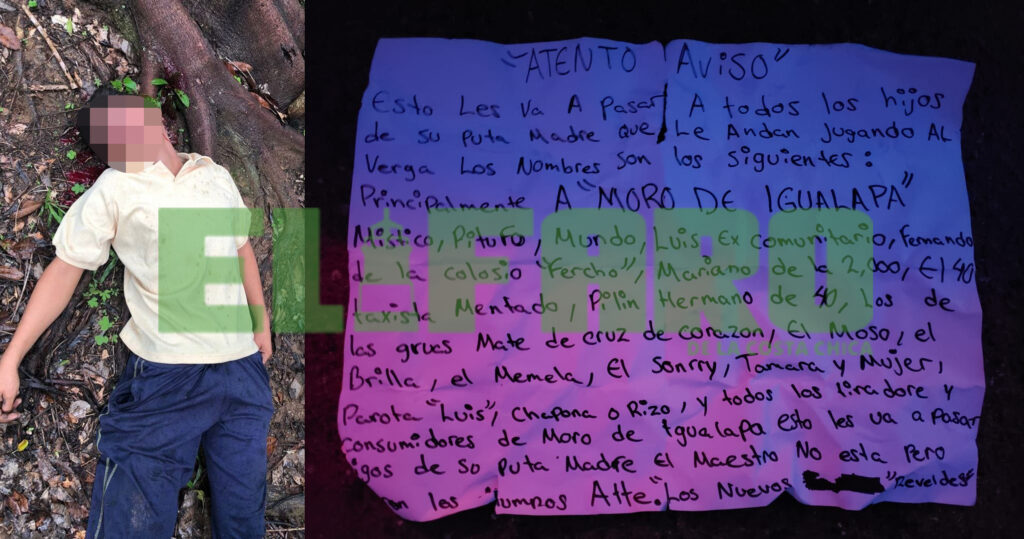 "ATENTO AVISO"
Esto Les va A Pasar A todos los hijos
de su puta Madre que Le Andan Jugando AL
Verga Los Nombres son los siguientes:
Principalmente A "MORO DE IGUALAPA"
Mistico, Pitufo, Mundo, Luis Ex comunitario, Fernando
de la colosio "Fercho", Mariano de la 2,000, El 40
taxista Mentado, Pilin Hermano de 40, Los de
las gruas Mate de cruz de corazon, El Moso, el
Brilla, el Memela, El Sonrry, Tamara y Mujer,
Parota "Luis", Chapona o Rizo, y todos los tiradore y
consumidores de Moro de Igualapa esto les va a pasar
igos de so puta Madre El Maestro No esta Pero
las Atte. "Los Nuevos "Reveldes"
EL FARO
DE LA COSTA CHICA